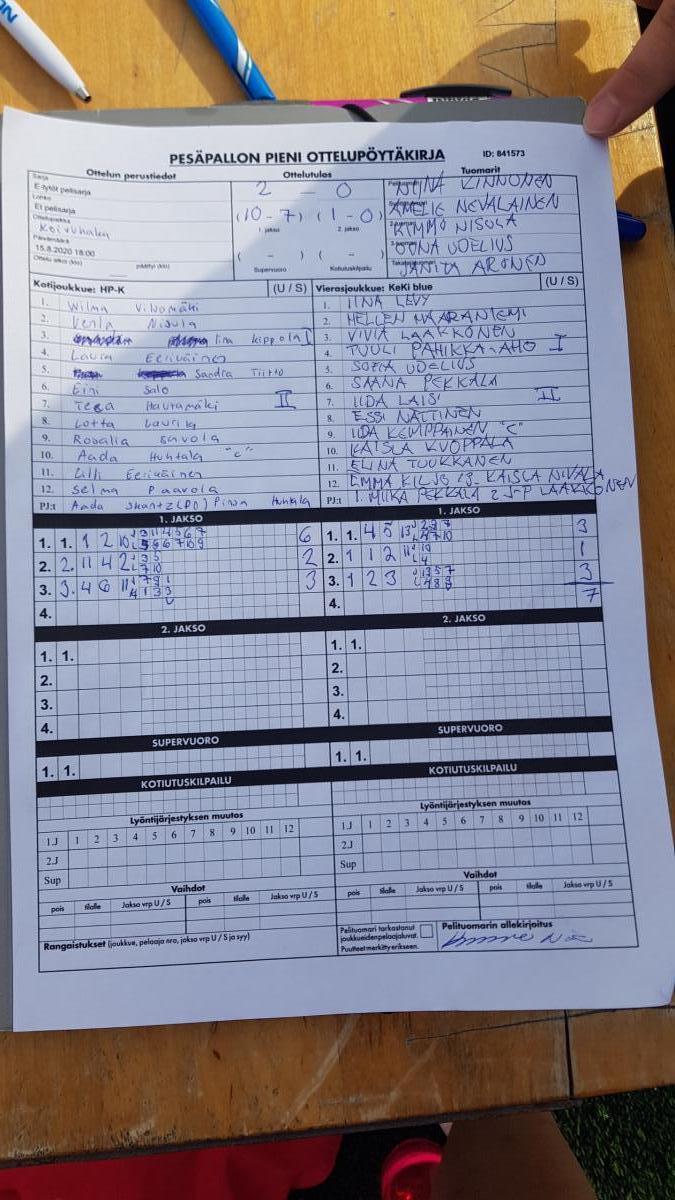 PESÄPALLON PIENI OTTELUPÖYTÄKIRJA ID: 841573
Ottelun perustiedot Ottelutulos Tuomarit
Sarja
E-tytöt pelisarja
Lohko
Ei pelisarja
Ottelupaikka
Koivuhaka
Päivämäärä
15.8.2020 18:00
Ottelu alkoi (klo) päättyi (klo)
2 - 0
(10 - 7) (1 - 0)
1. jakso 2. jakso
( - ) ( - )
Supervuoro Kotiutuskilpailu
NIINA KINNUNEN
AMELIE NEVALAINEN
KIMMO NISULA
OONA UDELIUS
JANITA ARONEN
Kotijoukkue: HP-K (U / S) Vierasjoukkue: KeKi blue (U / S)
1. Wilma Vihomäki 1. IINA LEVY
2. Venla Nisula 2. HELLEN MAARANIEMI
3. Iina Kippola I 3. VIVIA LAAKKONEN
4. Laura Eeriväinen 4. TUULI PAHIKKA-AHO I
5. Sandra Tiitto 5. SOFIA UDELIUS
6. Eini Salo 6. SAANA PEKKALA
7. Teea Hautamäki II 7. IIDA LAISI II
8. Lotta Laurila 8. ESSI NÄTTINEN
9. Rosalia Savola 9. IIDA KEMPPAINEN "C"
10. Aada Huhtala "c" 10. KAISLA KUOPPALA
11. Lilli Eeriväinen 11. ELINA TOUKKANEN
12. Selma Paavola 12. EMMA KILJO 13. KAISLA NIVALA
PJ:t Aada Skantz (PJ) Pinja Huhtala PJ:t 1. MIIKA PEKKALA 2. J-P LAAKKONEN
1. JAKSO 1. JAKSO
1. 1. 1 2 10 6 1. 1. 4 5 13 3
2. 2. 11 4 2 2 2. 1 1 2 11 1
3. 3. 4 6 11 3 3. 1 2 3 3
4. 4. 7
2. JAKSO 2. JAKSO
1. 1. 1. 1.
2. 2.
3. 3.
4. 4.
SUPERVUORO SUPERVUORO
1. 1. 1. 1.
KOTIUTUSKILPAILU KOTIUTUSKILPAILU
Lyöntijärjestyksen muutos Lyöntijärjestyksen muutos
1.J 1 2 3 4 5 6 7 8 9 10 11 12 1.J 1 2 3 4 5 6 7 8 9 10 11 12
2.J 2.J
Sup Sup
Vaihdot Vaihdot
pois tilalle Jakso vrp U / S pois tilalle Jakso vrp U / S pois tilalle Jakso vrp U / S pois tilalle Jakso vrp U / S
Rangaistukset (joukkue, pelaaja nro, jakso vrp U / S ja syy)
Pelituomari tarkastanut
joukkueiden pelaajaluvat.
Puutteet merkitty erikseen.
Pelituomarin allekirjoitus